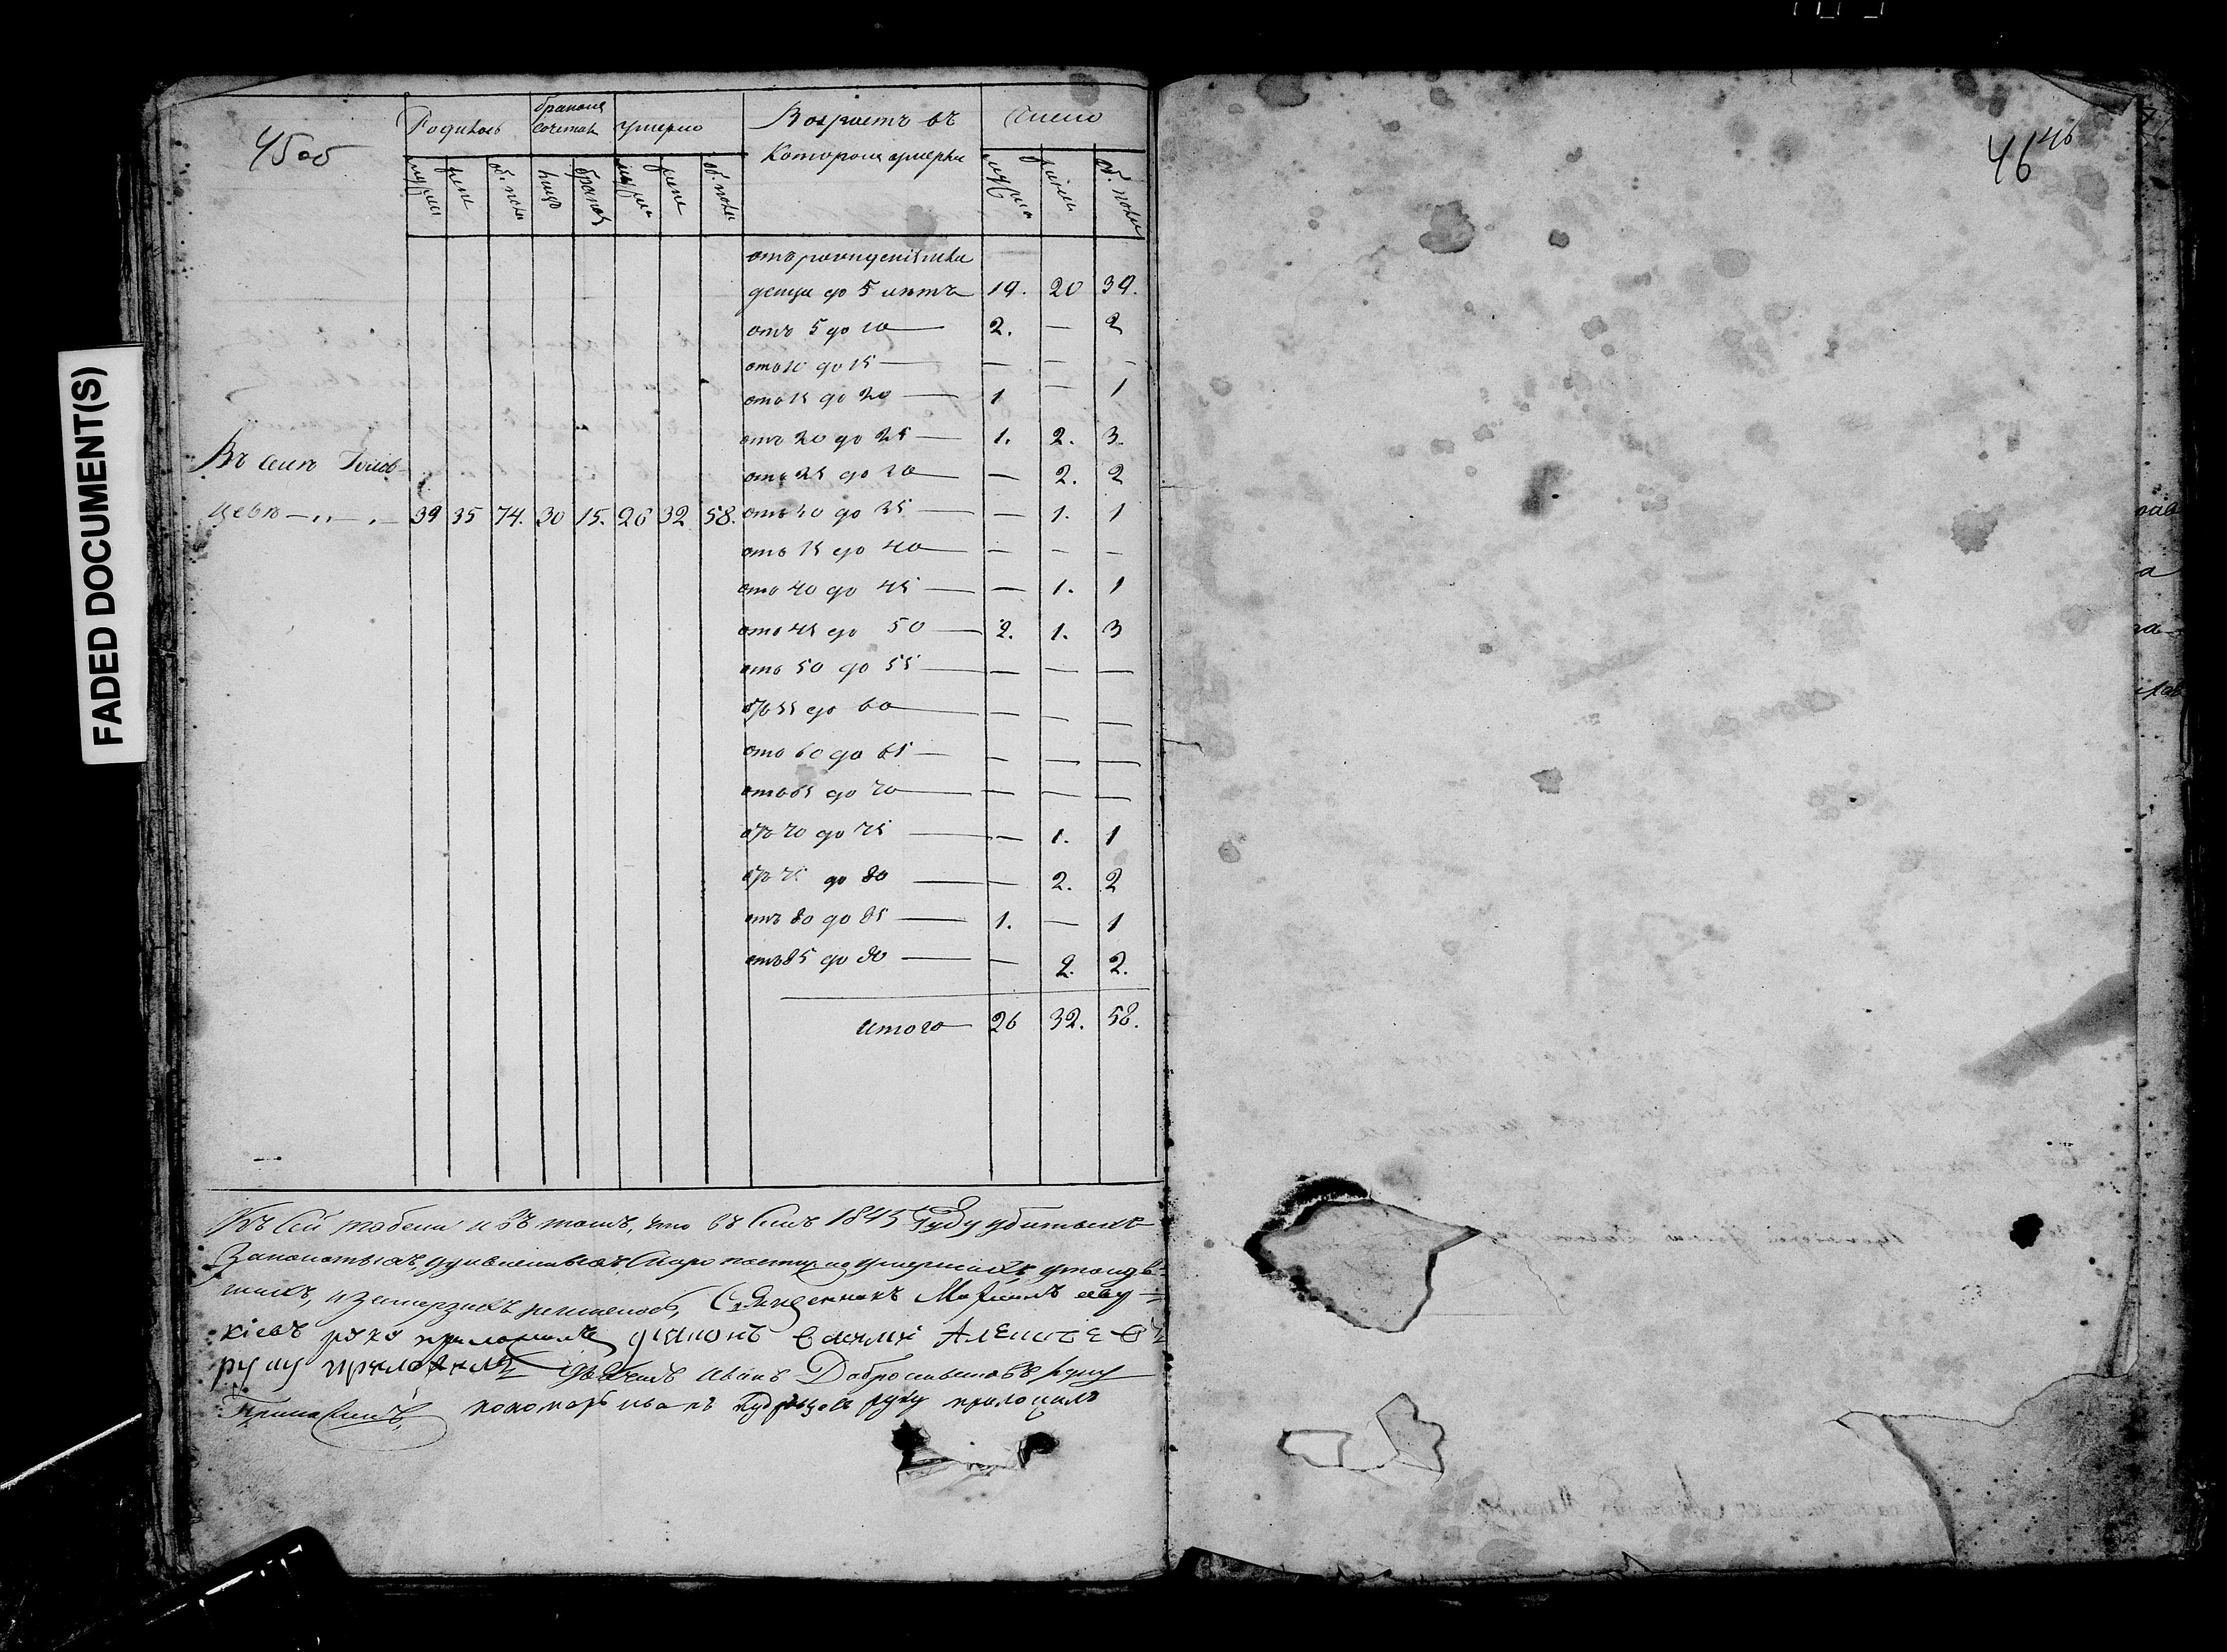 FADED DOCUMENT(S)
45об
46 46
Родилось бракомъ сочетал умерло Возрастъ въ которомъ умерли Число
муж жен об. пола лицъ браковъ муж жен об. пола муж жен об. пола
отъ рожденія
до 5 летъ 19. 20 39.
отъ 5 до 10 — 2. — 2
отъ 10 до 15 — — — —
отъ 15 до 20 — 1 — 1
отъ 20 до 25 — 1. 2. 3.
Въ селе
отъ 25 до 30 — — 2. 2
цевѣ 39 35 74. 30 15. 26 32 58. отъ 30 до 35 — — 1. 1
отъ 35 до 40 — — — —
отъ 40 до 45 — — 1. 1
отъ 45 до 50 — 2. 1. 3
отъ 50 до 55 — — — —
отъ 55 до 60 — — — —
отъ 60 до 65 — — — —
отъ 65 до 70 — — — —
отъ 70 до 75 — — 1. 1
отъ 75 до 80 — — 2. 2
отъ 80 до 85 — 1. — 1
отъ 85 до 90 — — 2. 2.
итого 26 32. 58.
Къ сей табели и въ томъ, что въ семъ 1845 Году убитыхъ
скоропостижно умершихъ, утонув-
шихъ, и замерзшихъ Священникъ
руку приложилъ діаконъ Василій Алексѣевъ
руку приложилъ дьячекъ Иванъ Добросельскій руку
приложилъ, пономарь Иванъ руку приложилъ